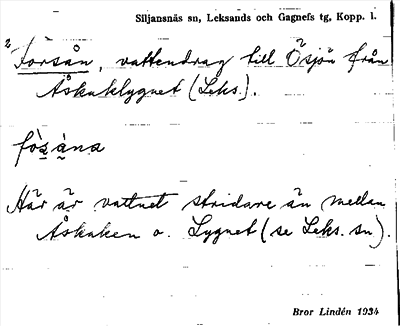 Siljansnäs sn, Leksands och Gagnefs tg, Kopp. l.
2 Forsån, vattendrag till Ösjön från
Åskaklygnet (Leks.).
fò̀s̱ą̀na
Här är vattnet stridare än mellan
Åskaken o. Lygnet (se Leks. sn).
Bror Lindén 1934